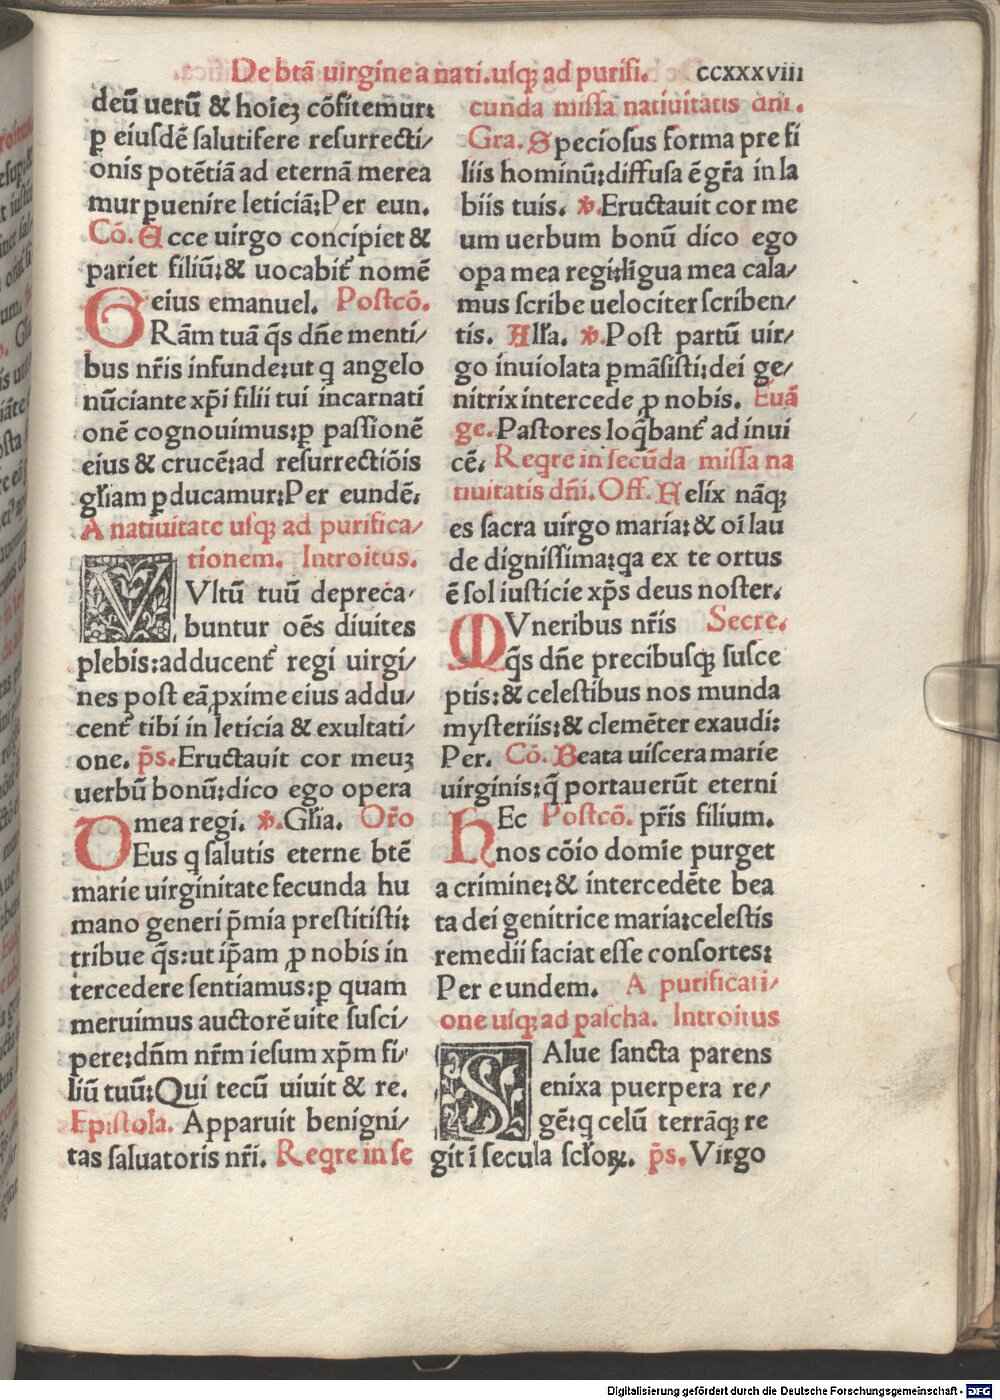 De btā uirgine a nati.uſqꝫ ad purifi. ccxxxviii
deū uerū & hoieꝫ cōfitemur:
ꝑ eiuſdē ſalutifere reſurrecti/
onis potētiā ad eternā merea
mur ꝑuenire leticiā:Per eun.
Cō. Ecce uirgo concipiet &
pariet filiū:& uocabit᷑ nomē
eius emanuel. Poſtcō.
GRām tuā q̄s dn̄e menti/
bus nr̄is infunde:ut q angelo
nūciante xp̄i filii tui incarnati
onē cognouimus:ꝑ paſſionē
eius & crucē:ad reſurrectiōis
gl̄iam ꝑducamur:Per eundē.
A natiuitate uſqꝫ ad purifica/
tionem. Introitus.
VVltū tuū depreca/
buntur oēs diuites
plebis:adducent᷑ regi uirgi/
nes poſt eā ꝓxime eius addu/
cent᷑ tibi in leticia & exultati/
one. p̄s. Eructauit cor meuꝫ
uerbū bonū:dico ego opera
mea regi. ℣. Gl̄ia. Or̄o
DEus q ſalutis eterne btē
marie uirginitate fecunda hu
mano generi p̄mia preſtitiſti:
tribue q̄s:ut ip̄am ꝓ nobis in
tercedere ſentiamus:ꝑ quam
meruimus auctorē uite ſuſci/
pere:dn̄m nr̄m ieſum xp̄m fi/
liū tuū:Qui tecū uiuit & re.
Epiſtola. Apparuit benigni/
tas ſaluatoris nr̄i. Reqre in ſe
cunda miſſa natiuitatis dni.
Gra. Specioſus forma pre fi
liis hominū:diffuſa ē gr̄a in la
biis tuis. ℣. Eructauit cor me
um uerbum bonū dico ego
opa mea regi:līgua mea cala/
mus ſcribe uelociter ſcriben/
tis. All̄a. ℣. Poſt partū uir/
go inuiolata ꝑmāſiſti:dei ge/
nitrix intercede ꝓ nobis. Euā
ge. Paſtores loq̄bant᷑ ad inui
cē. Reqre in ſecūda miſſa na
tiuitatis dn̄i. Off. Felix nāqꝫ
es ſacra uirgo maria:& oī lau
de digniſſima:qa ex te ortus
ē ſol iuſticie xp̄s deus noſter.
MVneribus nr̄is Secre.
q̄s dn̄e precibuſqꝫ ſuſce
ptis:& celeſtibus nos munda
myſteriis:& clemēter exaudi:
Per. Cō. Beata uiſcera marie
uirginis:q̄ portauerūt eterni
HEc Poſtcō. pr̄is filium.
nos cōio domīe purget
a crimine:& intercedēte bea
ta dei genitrice maria:celeſtis
remedii faciat eſſe conſortes:
Per eundem. A purificati/
one uſqꝫ ad paſcha. Introitus
SAlue ſancta parens
enixa puerpera re/
gē:q celū terrāqꝫ re
git ī ſecula ſcl̄oꝝ. p̄s. Virgo
Digitalisierung gefördert durch die Deutsche Forschungsgemeinschaft - DFG